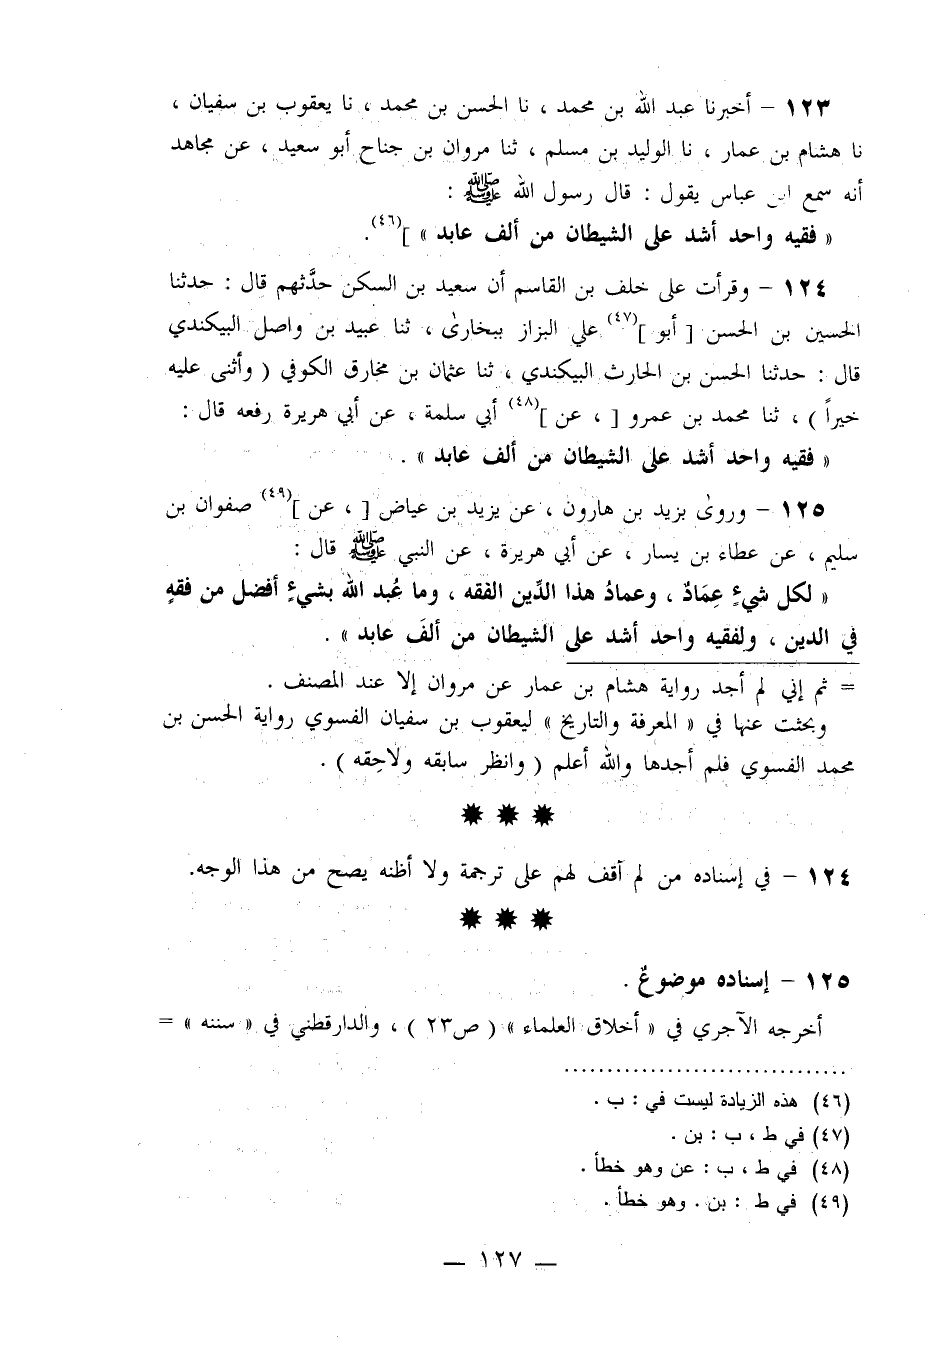 ١٢٣ – أخبرنا عبد الله بن محمد ، نا الحسن بن محمد ، نا يعقوب بن سفيان ،
نا هشام بن عمار ، نا الوليد بن مسلم ، ثنا مروان بن جناح أبو سعيد ، عن مجاهد
أنه سمع ابن عباس يقول : قال رسول الله ﷺ :
« فقيه واحد أشد على الشيطان من ألف عابد » ](٤٦).
١٢٤ – وقرأت على خلف بن القاسم أن سعيد بن السكن حدَّثهم قال : حدثنا
الحسين بن الحسن [ أبو ](٤٧) علي البزاز ببخارىٰ ، ثنا عبيد بن واصل البيكندي
قال : حدثنا الحسن بن الحارث البيكندي ، ثنا عثمان بن مخارق الكوفي ( وأثنى عليه
خيراً ) ، ثنا محمد بن عمرو [ ، عن ](٤٨) أبي سلمة ، عن أبي هريرة رفعه قال :
« فقيه واحد أشد على الشيطان من ألف عابد » .
١٢٥ – وروىٰ يزيد بن هارون ، عن يزيد بن عياض [ ، عن ](٤٩) صفوان بن
سليم ، عن عطاء بن يسار ، عن أبي هريرة ، عن النبي ﷺ قال :
« لكل شيءٍ عِمَادٌ ، وعمادُ هذا الدِّين الفقه ، وما عُبد الله بشيءٍ أفضل من فقهٍ
في الدين ، ولفقيه واحد أشد على الشيطان من ألف عابد » .
= ثم إني لم أجد رواية هشام بن عمار عن مروان إلا عند المصنف .
وبحثت عنها في « المعرفة والتاريخ » ليعقوب بن سفيان الفسوي رواية الحسن بن
محمد الفسوي فلم أجدها والله أعلم ( وانظر سابقه ولاحِقه ) .
١٢٤ – في إسناده من لم أقف لهم على ترجمة ولا أظنه يصح من هذا الوجه.
١٢٥ – إسناده موضوعٌ .
أخرجه الآجري في « أخلاق العلماء » ( ص٢٣ ) ، والدارقطني في « سننه » =
(٤٦) هذه الزيادة ليست في : ب .
(٤٧) في ط ، ب : بن .
(٤٨) في ط ، ب : عن وهو خطأ .
(٤٩) في ط : بن . وهو خطأ .
— ١٢٧ —